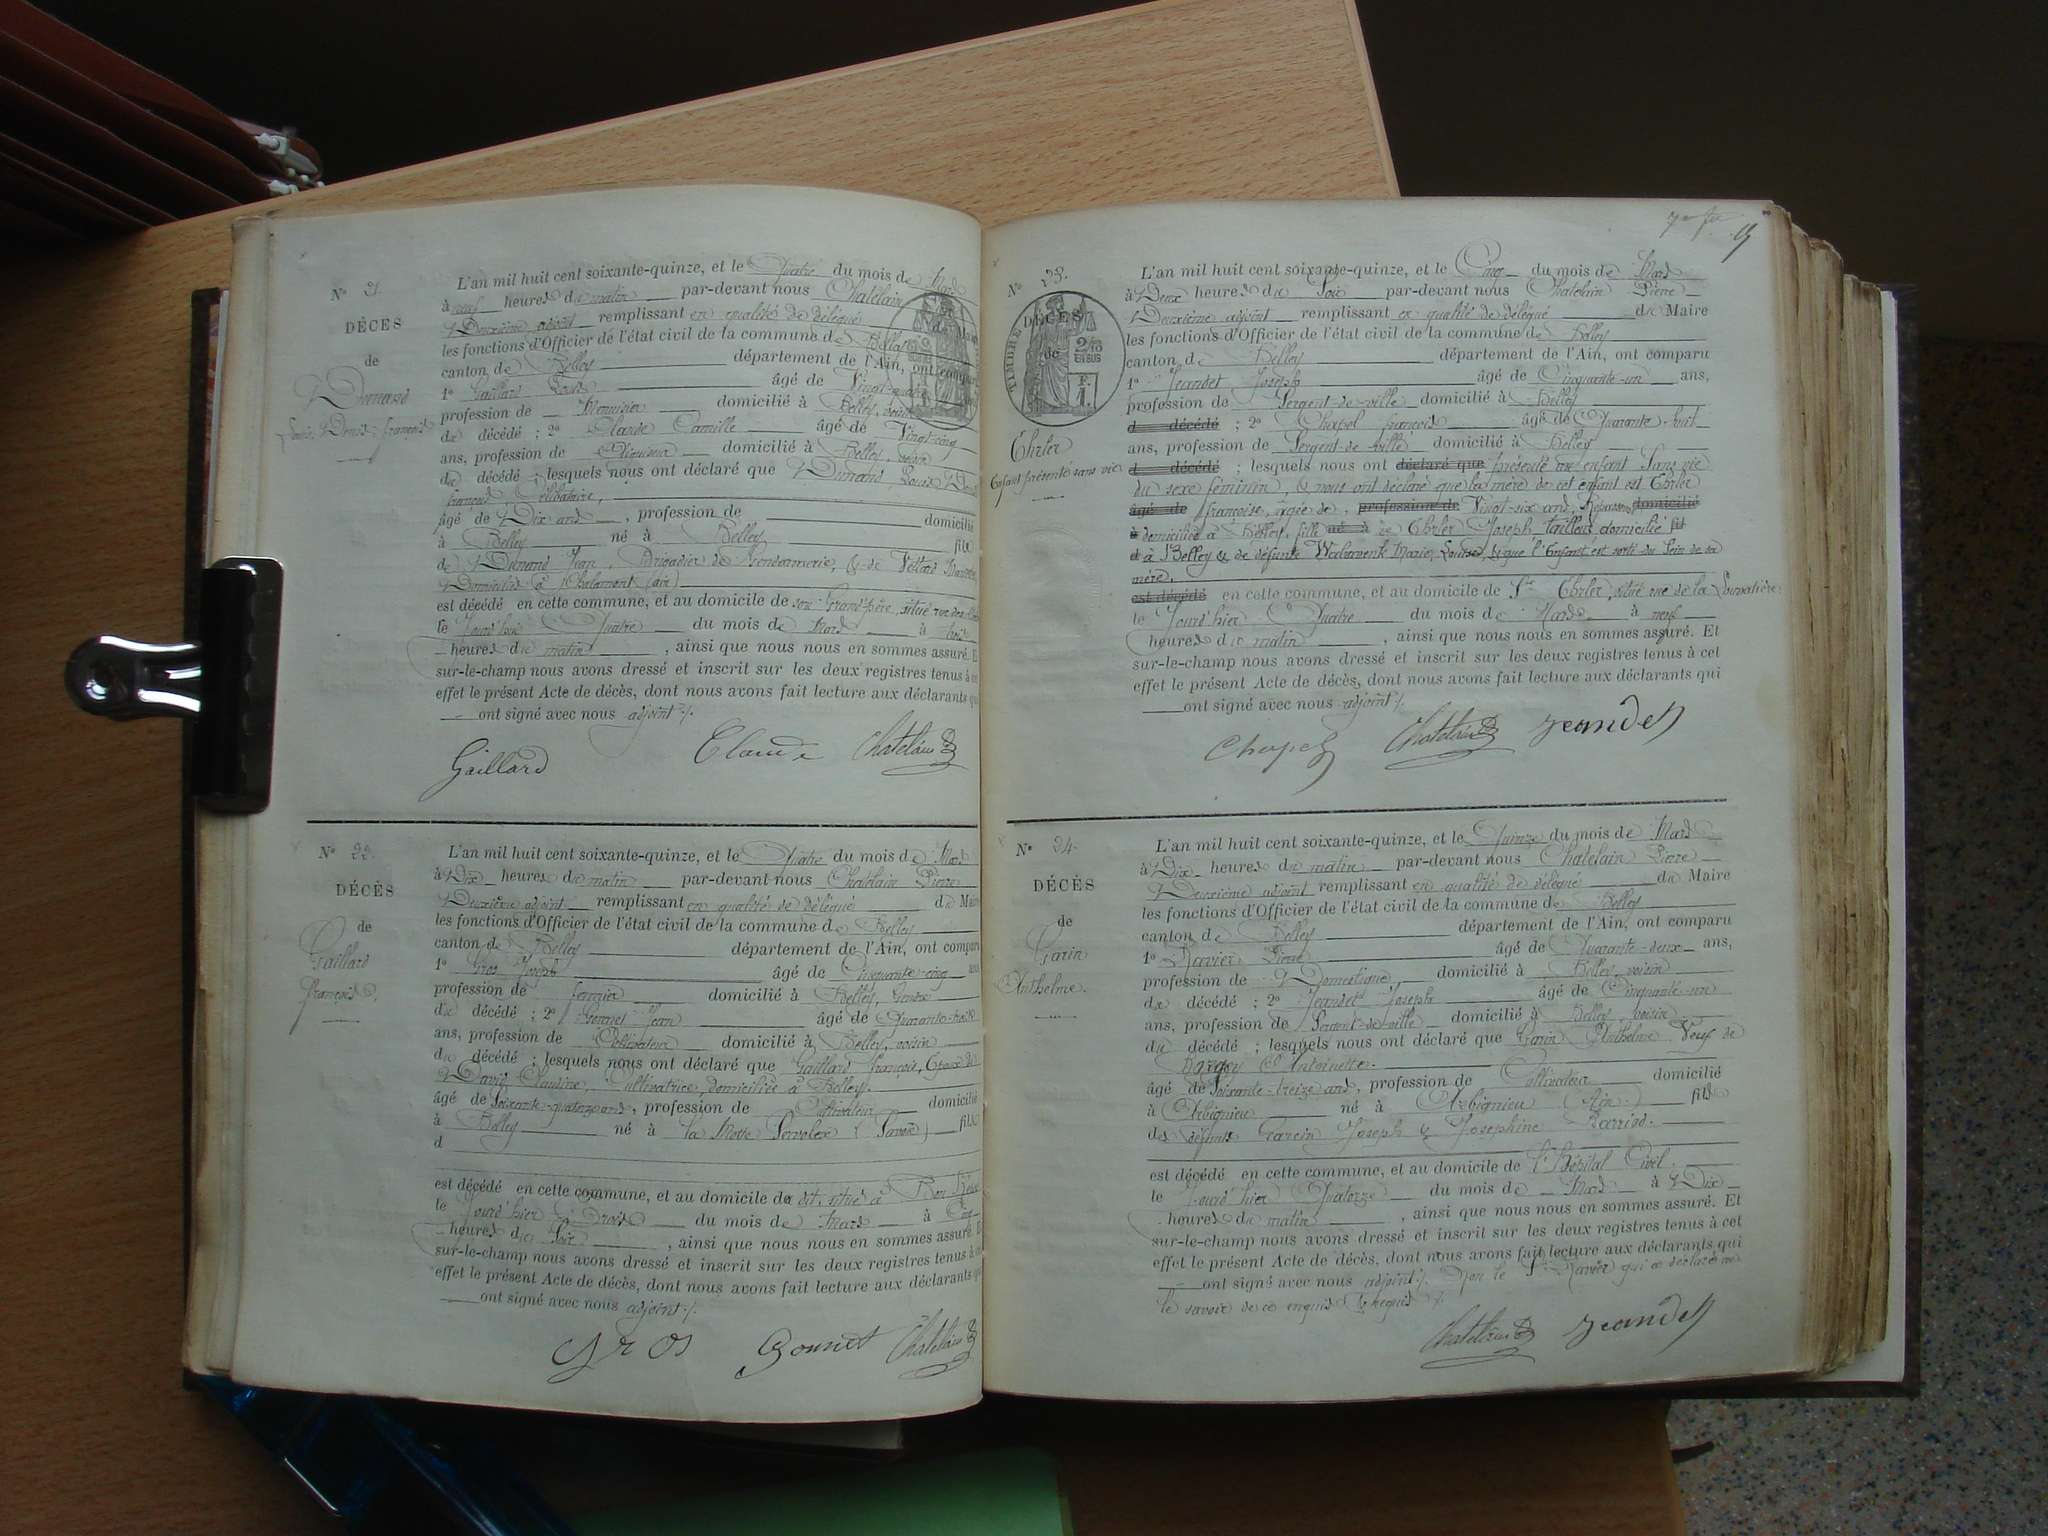 N° 21.
DÉCES
de
Dunand
Louis, Denis, françois
L'an mil huit cent soixante-quinze, et le Quatre du mois de Mars
à neuf heures du matin par-devant nous Chatelain
Deuxième adjoint remplissant en qualité de délégué
les fonctions d'Officier de l'état civil de la commune de Belley
canton de Belley département de l'Ain, ont comparu
1° Gaillard Louis âgé de Vingt-
profession de Menuisier domicilié à Belley, voisin
du décédé ; 2° Claude Camille âgé de Vingt-cinq
ans, profession de domicilié à Belley, voisin
du décédé ; lesquels nous ont déclaré que Dunand, Louis Denis
françois Célibataire,
âgé de Dix ans, profession de domicilié
à Belley né à Belley fils
de Dunand Jean, Brigadier de Gendarmerie, & de Villard
Domiciliés à Chalamont (ain)
est décédé en cette commune, et au domicile de son Grand'père, situé rue
le Jourd'hui Quatre du mois de Mars à trois
heures du matin, ainsi que nous nous en sommes assuré. Et
sur-le-champ nous avons dressé et inscrit sur les deux registres tenus à cet
effet le présent Acte de décès, dont nous avons fait lecture aux déclarants qui
ont signé avec nous adjoint ./.
Gaillard Claude Chatelain
N° 22.
DÉCÈS
de
Gaillard
françois.
L'an mil huit cent soixante-quinze, et le Quatre du mois de Mars
à Dix heures du matin par-devant nous Chatelain Pierre
Deuxième adjoint remplissant en qualité de délégué du Maire
les fonctions d'Officier de l'état civil de la commune de Belley
canton de Belley département de l'Ain, ont comparu
1° Gros Joseph âgé de Cinquante-cinq ans
profession de fermier domicilié à Belley, Gendre
du décédé ; 2° Gonnet Jean âgé de Quarante-trois
ans, profession de Cultivateur domicilié à Belley, voisin
du décédé ; lesquels nous ont déclaré que Gaillard françois, Epoux de
David Claudine, Cultivatrice domiciliée à Belley.
âgé de Soixante-quatorze ans, profession de Cultivateur domicilié
à Belley né à la Motte Servolex (Savoie) fils
d
est décédé en cette commune, et au domicile du dit, situé à
le Jourd'hier Trois du mois de Mars à Cinq
heures du Soir, ainsi que nous nous en sommes assuré. Et
sur-le-champ nous avons dressé et inscrit sur les deux registres tenus à cet
effet le présent Acte de décès, dont nous avons fait lecture aux déclarants qui
ont signé avec nous adjoint ./.
Gros Gonnet Chatelain
N° 23.
DÉCÈS
de
TIMBRE 2/10 EN SUS F. 1.
Ehrler
Enfant présenté sans vie
L'an mil huit cent soixante-quinze, et le Cinq du mois de Mars
à Deux heures du Soir par-devant nous Chatelain Pierre
Deuxième adjoint remplissant en qualité de délégué du Maire
les fonctions d'Officier de l'état civil de la commune de Belley
canton de Belley département de l'Ain, ont comparu
1° Jeandet Joseph âgé de Cinquante-un ans,
profession de Sergent de ville domicilié à Belley
d décédé ; 2° Chapel françois âgé de Quarante-huit
ans, profession de Sergent de ville domicilié à Belley
d décédé ; lesquels nous ont déclaré que présenté un enfant Sans vie
du sexe féminin, & nous ont déclaré que la mère de cet enfant est Ehrler
âgé de françoise, agée de, profession de Vingt-six ans, domicilié
à domiciliée à Belley, fille né à de Ehrler Joseph, tailleur domicilié fil
d à Belley & de défunte Marie, Louise, & que l'Enfant est sorti du Sein de sa
mère,
est décédé en cette commune, et au domicile de Sr Ehrler, situé rue de la
le Jourd'hier Quatre du mois de Mars à neuf
heures du matin, ainsi que nous nous en sommes assuré. Et
sur-le-champ nous avons dressé et inscrit sur les deux registres tenus à cet
effet le présent Acte de décès, dont nous avons fait lecture aux déclarants qui
ont signé avec nous adjoint ./.
Chapel Chatelain Jeandet
N° 24.
DÉCÈS
de
Garin
Anthelme.
L'an mil huit cent soixante-quinze, et le Quinze du mois de Mars
à Dix heures du matin par-devant nous Chatelain Pierre
Deuxième adjoint remplissant en qualité de délégué du Maire
les fonctions d'Officier de l'état civil de la commune de Belley
canton de Belley département de l'Ain, ont comparu
1° Ravier Pierre âgé de Quarante-deux ans,
profession de Domestique, domicilié à Belley, voisin
du décédé ; 2° Jeandet Joseph âgé de Cinquante-un
ans, profession de Sergent-de-ville domicilié à Belley, voisin
du décédé ; lesquels nous ont déclaré que Garin Anthelme Veuf de
Antoinette.
âgé de Soixante-treize ans, profession de Cultivateur domicilié
à Arbignieu né à Arbignieu (Ain) fils
des défunts Garin Joseph & Josephine
est décédé en cette commune, et au domicile de l'Hôpital Civil.
le Jourd'hier Quatorze du mois de Mars à Dix
heures du matin, ainsi que nous nous en sommes assuré. Et
sur-le-champ nous avons dressé et inscrit sur les deux registres tenus à cet
effet le présent Acte de décès, dont nous avons fait lecture aux déclarants qui
ont signé avec nous adjoint ./. Non le Sr Ravier qui a déclaré ne
le savoir de ce enquis & requis ./.
Chatelain Jeandet